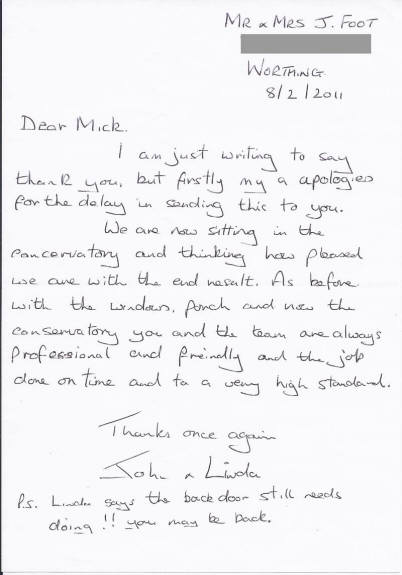 Mr & Mrs J. Foot
Worthing
8/2/2011
Dear Mick.
I am just writing to say
thank you, but firstly my a apologies
for the delay in sending this to you.
We are now sitting in the
concervatory and thinking how pleased
we are with the end result. As before
with the windows, porch and now the
conservatory you and the team are always
professional and freindly and the job
done on time and to a very high standard.
Thanks once again
John & Linda
P.S. Linda says the back door still needs
doing!! you may be back.